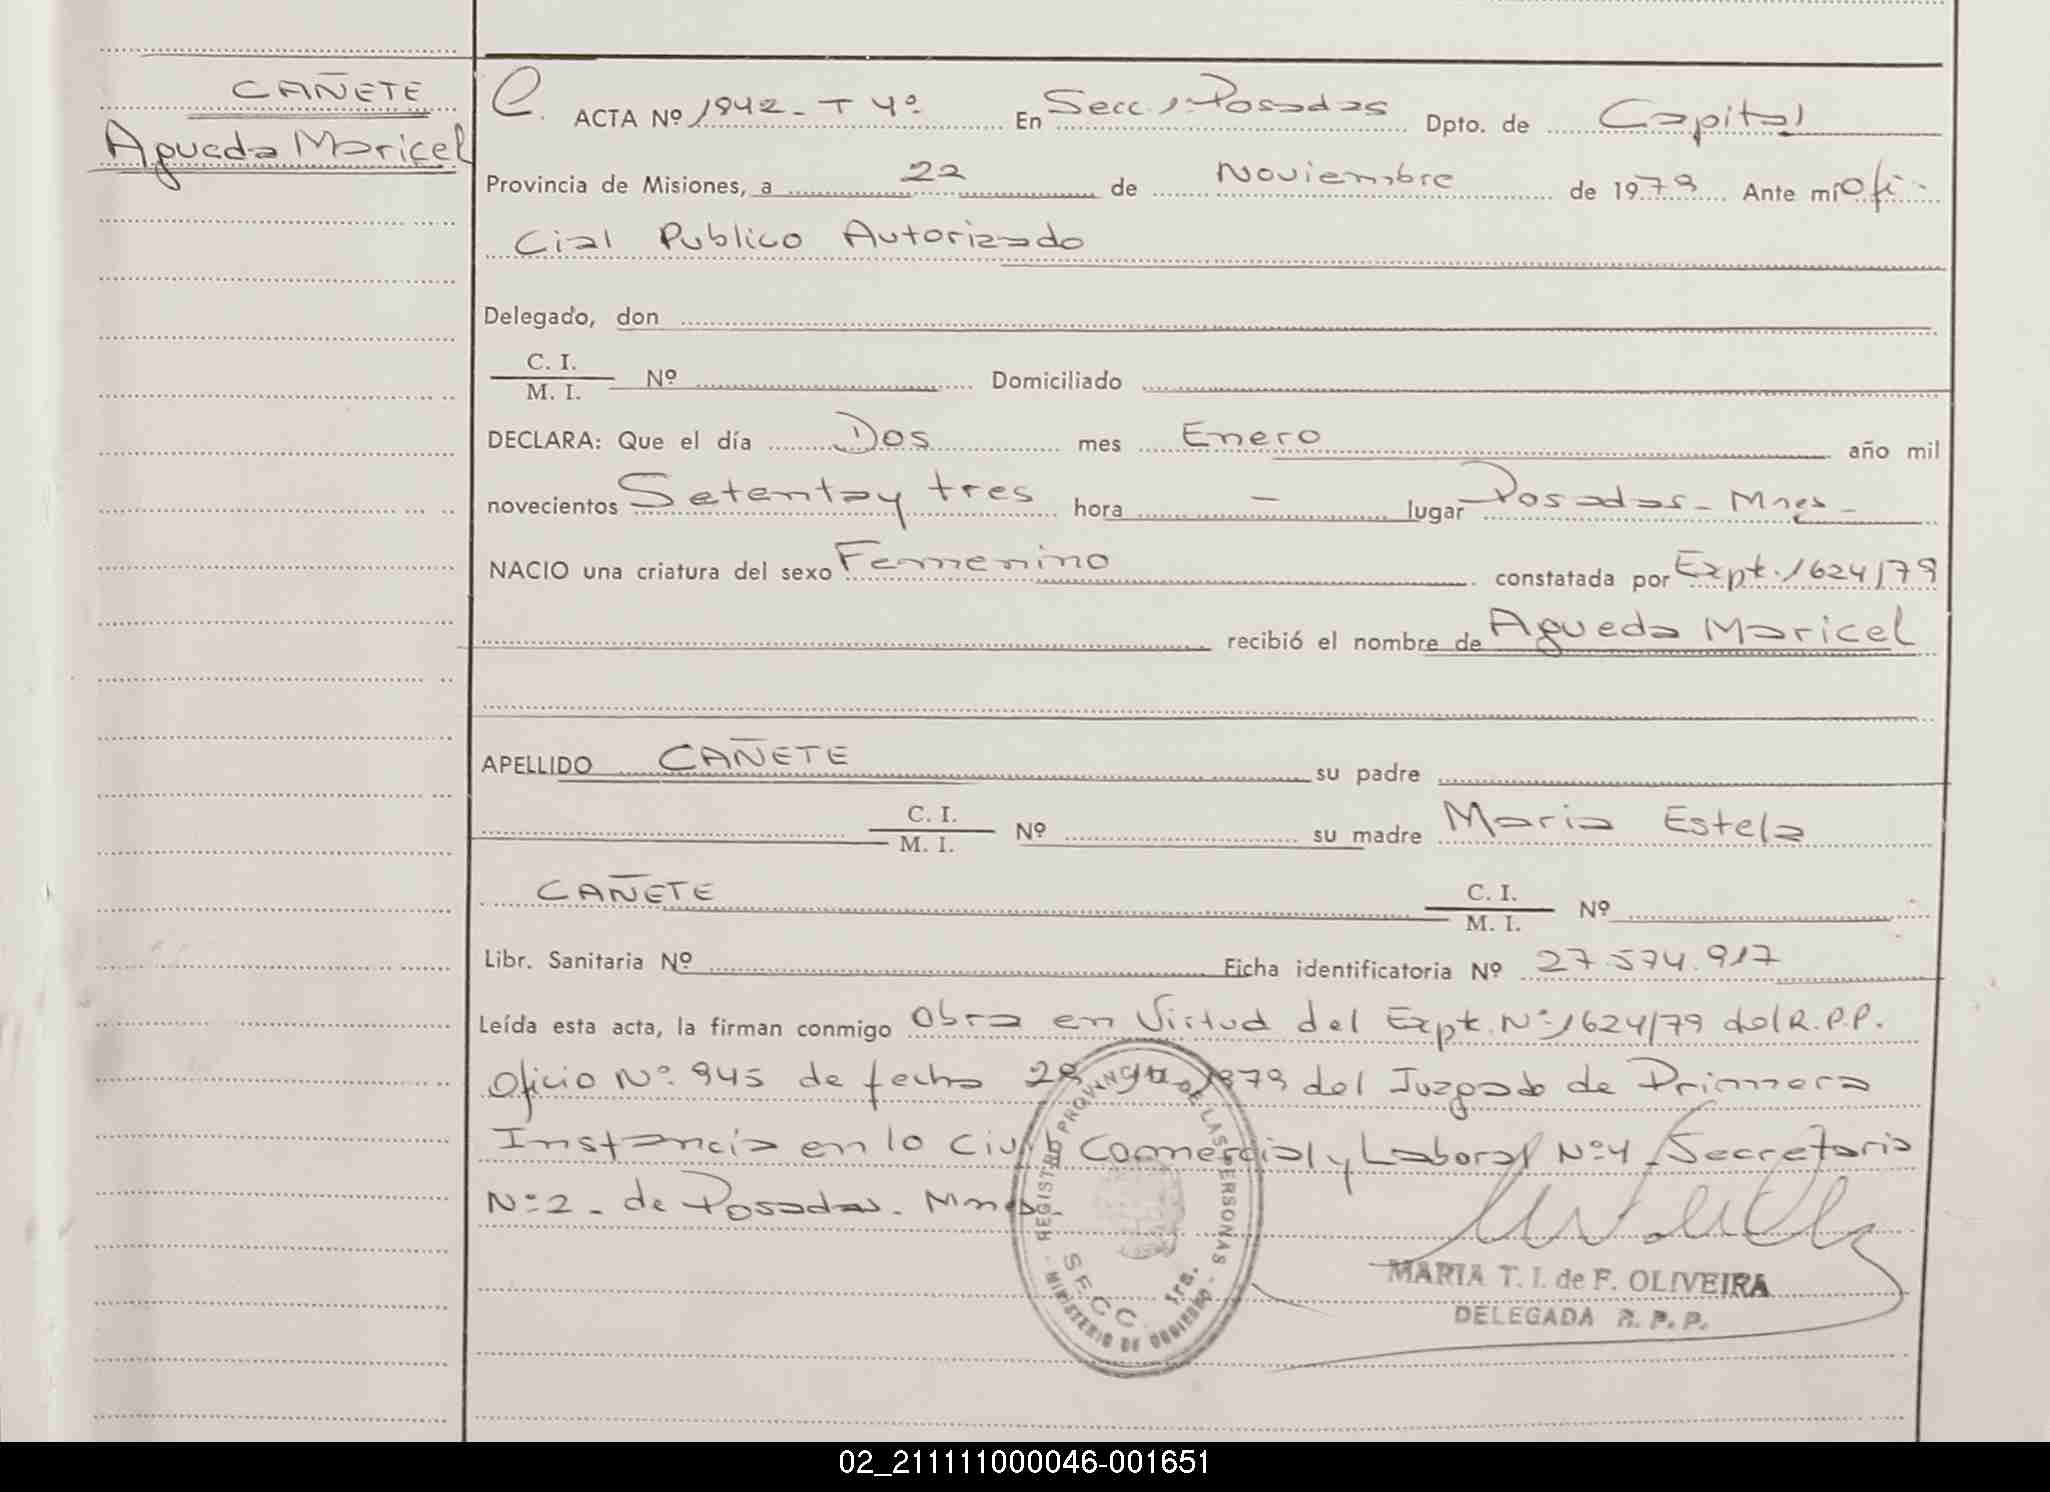 CAÑETE
Agueda Maricel
C. ACTA Nº 1942 - T 4º En Secc. 1ª Posadas Dpto. de Capital
Provincia de Misiones, a 22 de Noviembre de 1979 Ante mí Ofi-
cial Publico Autorizado
Delegado, don
C. I.
M. I. Nº Domiciliado
DECLARA: Que el día Dos mes Enero año mil
novecientos Setenta y tres hora - lugar Posadas - Mnes -
NACIO una criatura del sexo Femenino constatada por Expt. 1624/79
recibió el nombre de Agueda Maricel
APELLIDO CAÑETE su padre
C. I.
M. I. Nº su madre Maria Estela
CAÑETE C. I.
M. I. Nº
Libr. Sanitaria Nº Ficha identificatoria Nº 27.574.917
Leída esta acta, la firman conmigo Obra en Virtud del Expt. Nº 1624/79 del R.P.P.
Oficio Nº 945 de fecha 1979 del Juzgado de Primera
Instancia en lo Civil Comercial y Laboral Nº 4 - Secretaria
Nº 2 - de Posadas - Mnes -
REGISTRO PROVINCIAL DE LAS PERSONAS
SECC. 1ra.
MINISTERIO DE GOBIERNO
MARIA T. I. de F. OLIVEIRA
DELEGADA R. P. P.
02_211111000046-001651